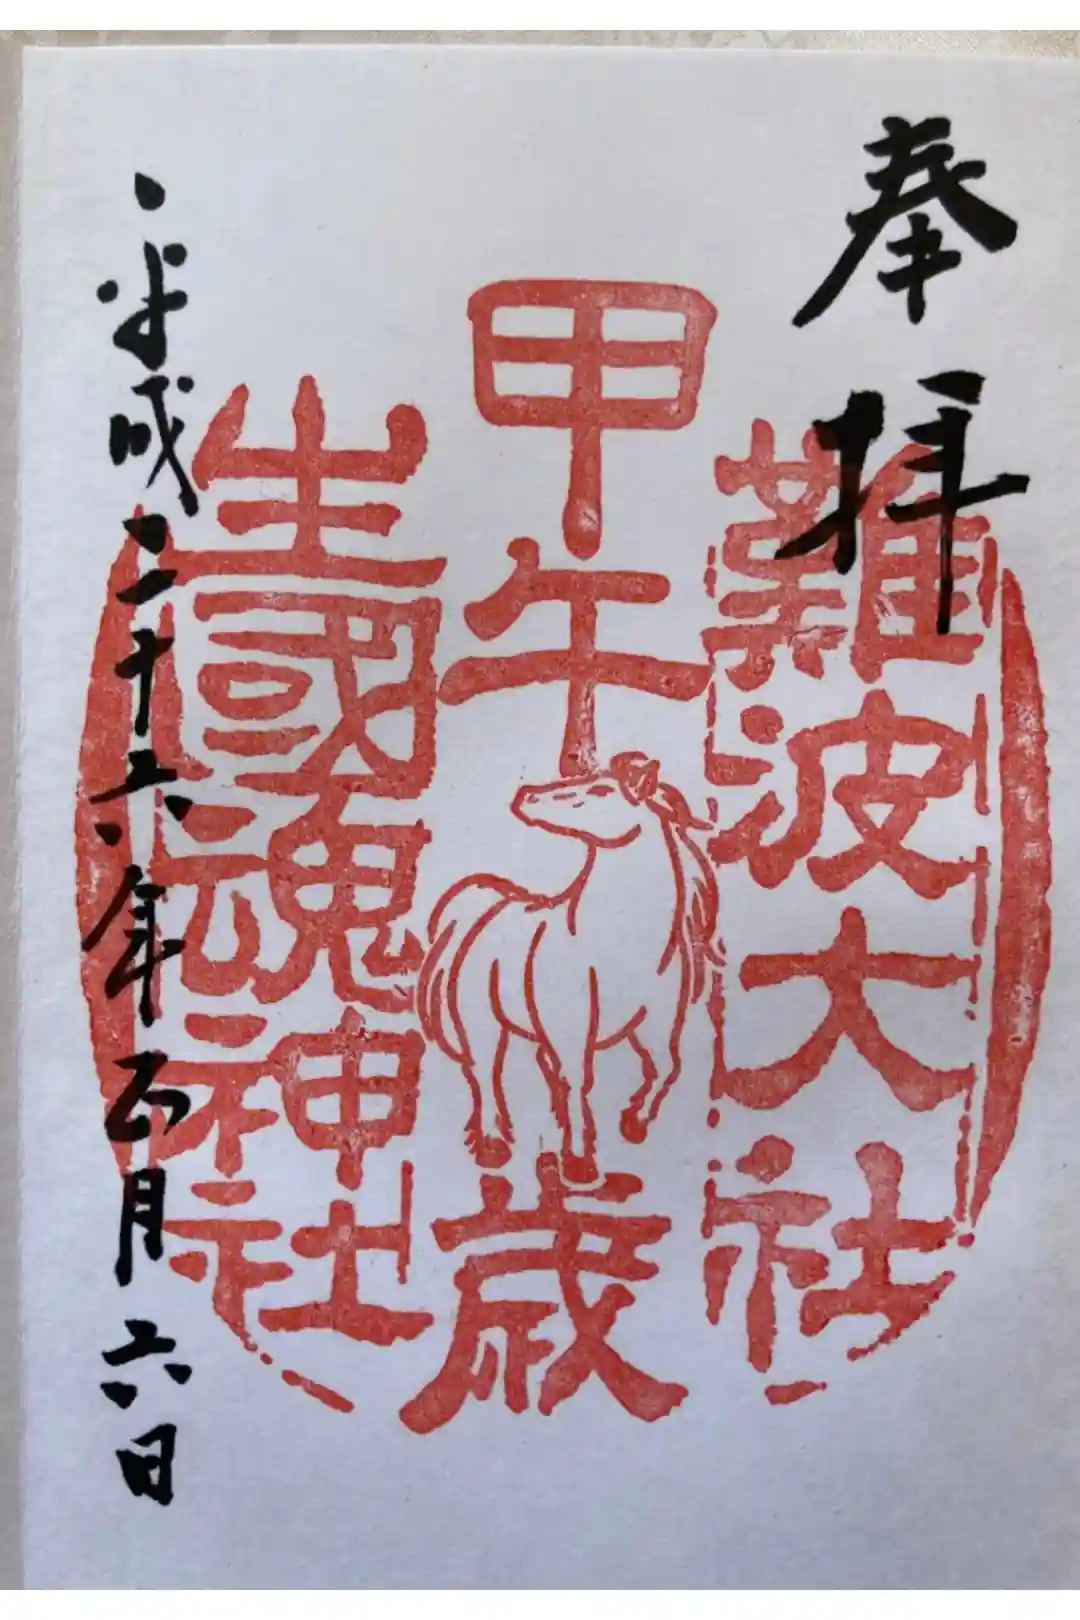 奉拝
難波大社
甲午歳
生國魂神社
平成二十六年正月六日